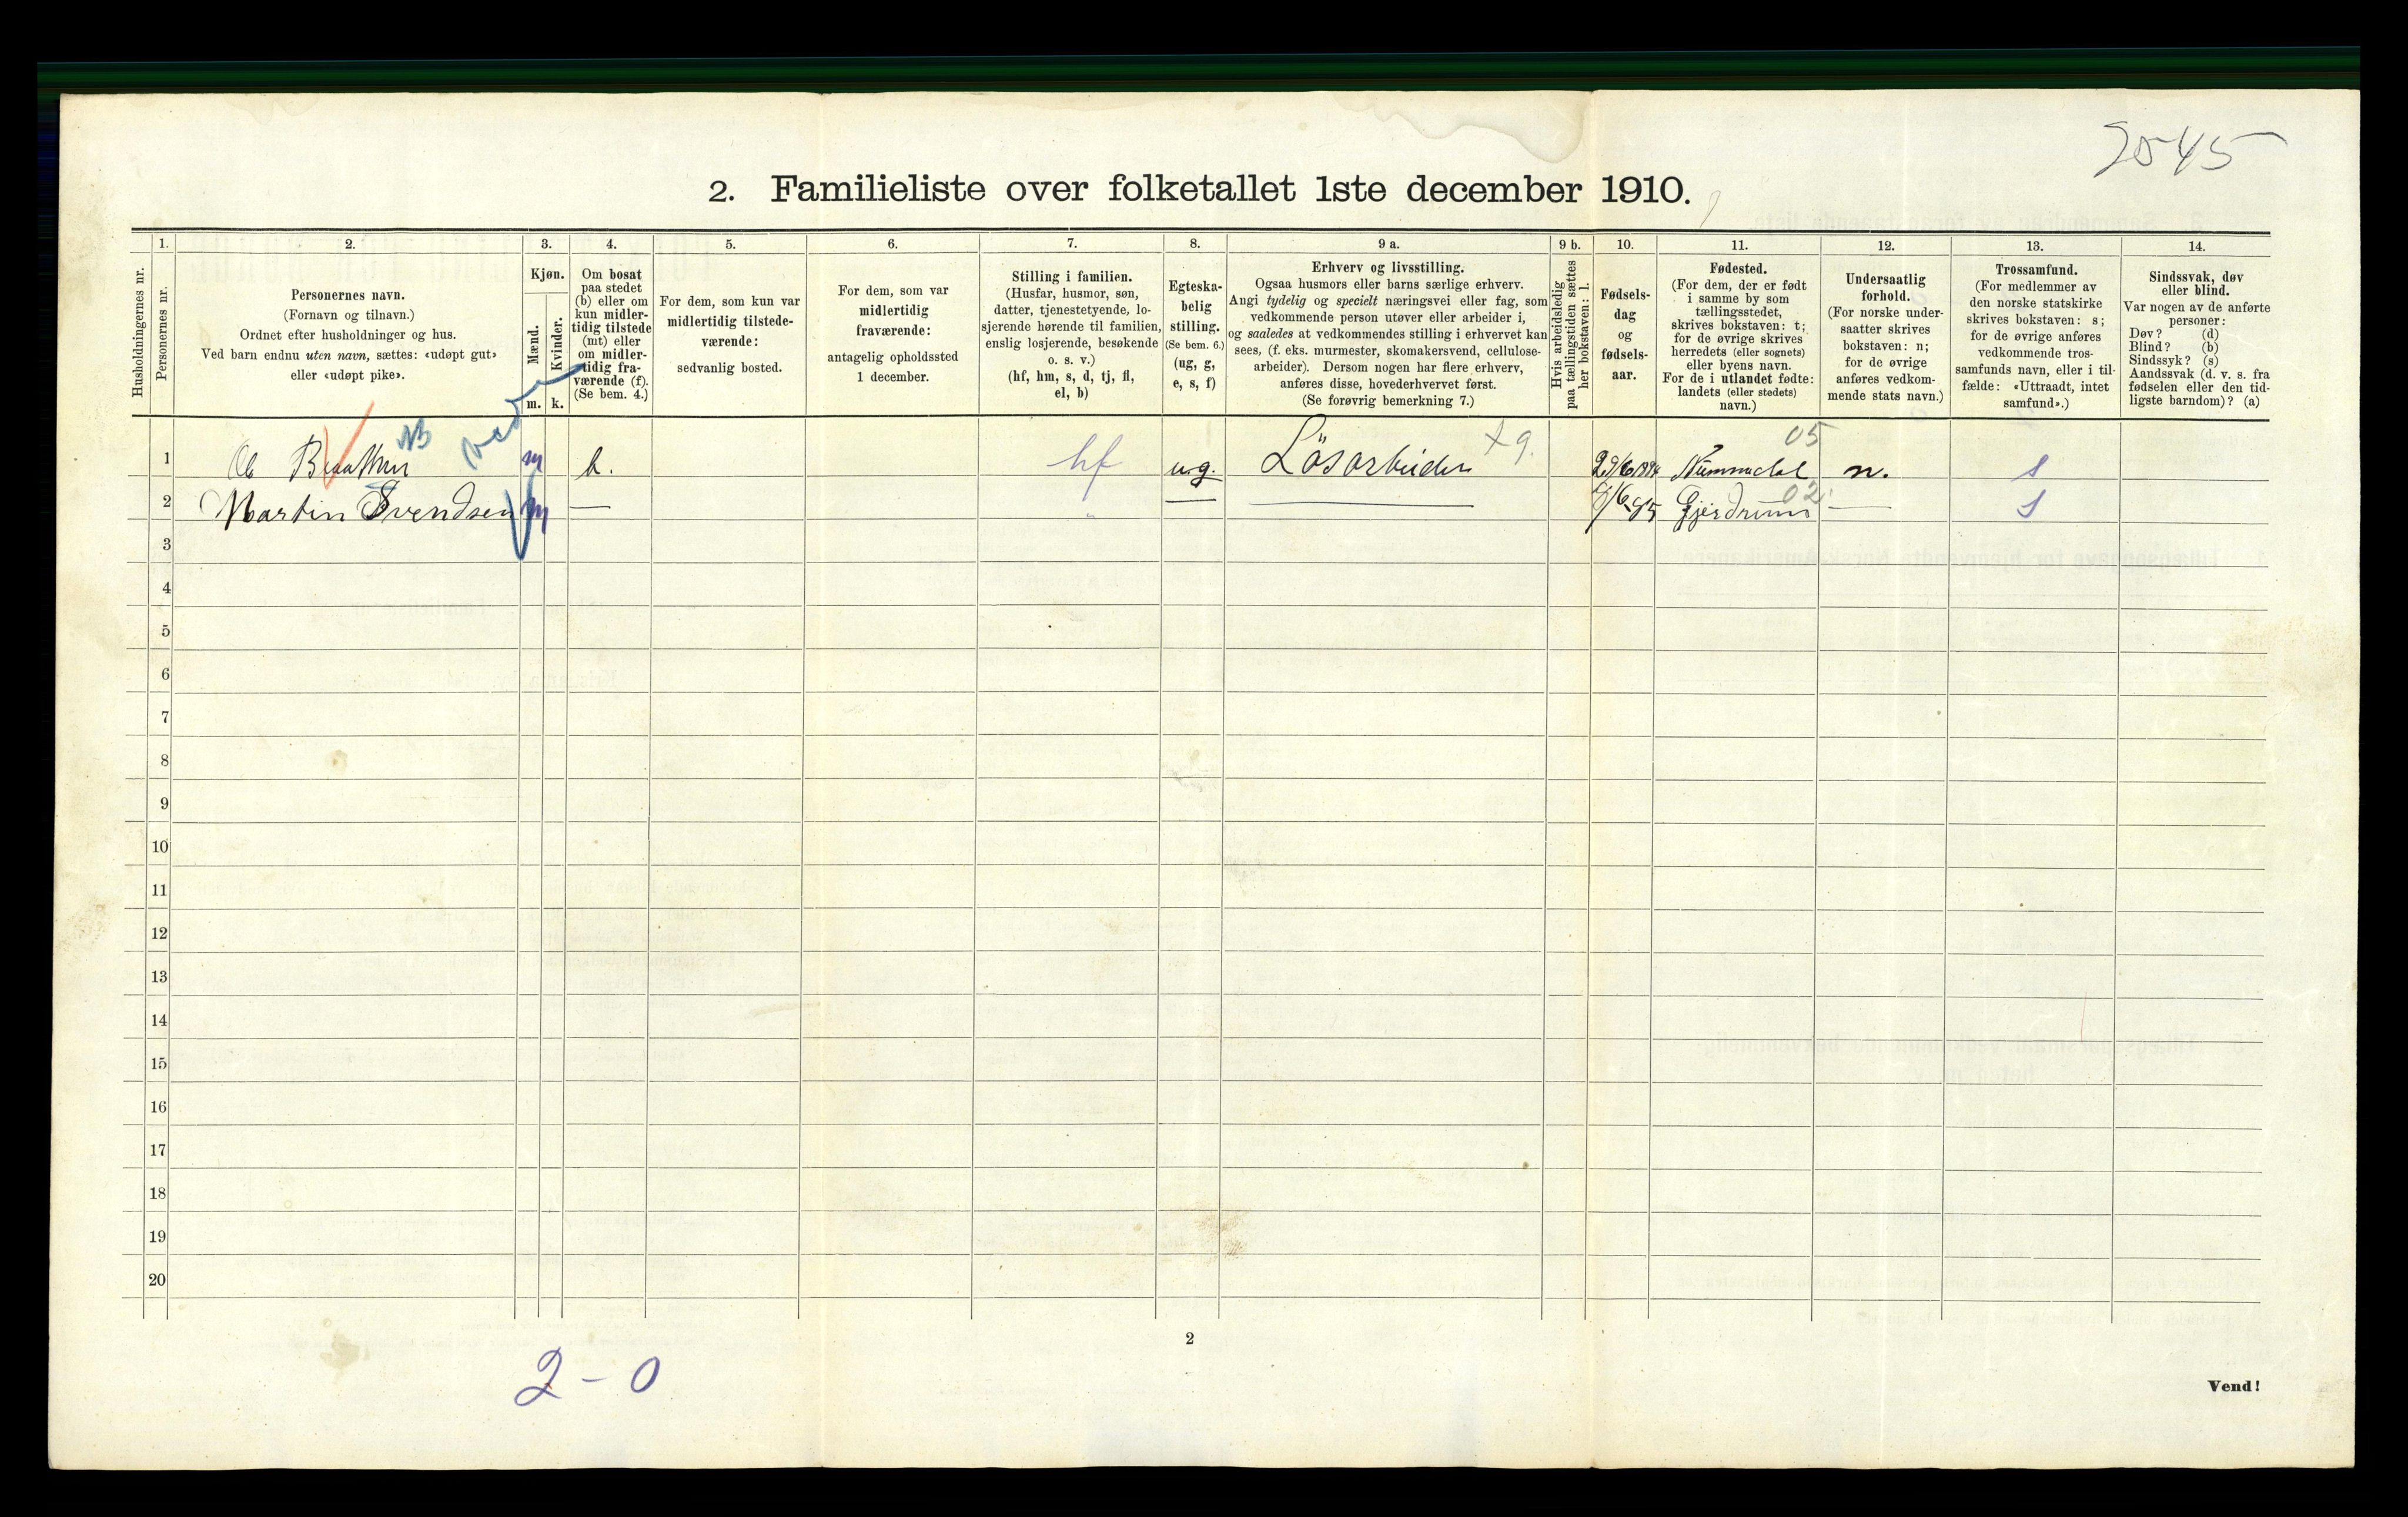 2545
2. Familieliste over folketallet 1ste december 1910.
Husholdningernes nr.
1.
Personernes nr.
2.
Personernes navn.
(Fornavn og tilnavn.)
Ordnet efter husholdninger og hus.
Ved barn endnu uten navn, sættes: «udøpt gut»
eller «udøpt pike».
3.
Kjøn.
Mænd.
Kvinder.
m. k.
4.
Om bosat
paa stedet
(b) eller om
kun midler-
tidig tilstede
(mt) eller
om midler-
tidig fra-
værende (f).
(Se bem. 4.)
5.
For dem, som kun var
midlertidig tilstede-
værende:
sedvanlig bosted.
6.
For dem, som var
midlertidig
fraværende:
antagelig opholdssted
1 december.
7.
Stilling i familien.
(Husfar, husmor, søn,
datter, tjenestetyende, lo-
sjerende hørende til familien,
enslig losjerende, besøkende
o. s. v.)
(hf, hm, s, d, tj, fl,
el, b)
8.
Egteska-
belig
stilling.
(Se bem. 6.)
(ug, g,
e, s, f)
9 a.
Erhverv og livsstilling.
Ogsaa husmors eller barns særlige erhverv.
Angi tydelig og specielt næringsvei eller fag, som
vedkommende person utøver eller arbeider i,
og saaledes at vedkommendes stilling i erhvervet kan
sees, (f. eks. murmester, skomakersvend, cellulose-
arbeider). Dersom nogen har flere erhverv,
anføres disse, hovederhvervet først.
(Se forøvrig bemerkning 7.)
9 b.
Hvis arbeidsledig
paa tællingstiden sættes
her bokstaven: l.
10.
Fødsels-
dag
og
fødsels-
aar.
11.
Fødested.
(For dem, der er født
i samme by som
tællingsstedet,
skrives bokstaven: t;
for de øvrige skrives
herredets (eller sognets)
eller byens navn.
For de i utlandet fødte:
landets (eller stedets)
navn.)
12.
Undersaatlig
forhold.
(For norske under-
saatter skrives
bokstaven: n;
for de øvrige
anføres vedkom-
mende stats navn.)
13.
Trossamfund.
(For medlemmer av
den norske statskirke
skrives bokstaven: s;
for de øvrige anføres
vedkommende tros-
samfunds navn, eller i til-
fælde: «Uttraadt, intet
samfund».)
14.
Sindssvak, døv
eller blind.
Var nogen av de anførte
personer:
Døv? (d)
Blind? (b)
Sindssyk? (s)
Aandssvak (d. v. s. fra
fødselen eller den tid-
ligste barndom)? (a)
1 m b. hf ug. Lösarbeider Nummedal 05 n. s
2 Martin Svendsen m — — — Gjerdrum 02 — s
3
4
5
6
7
8
9
10
11
12
13
14
15
16
17
18
19
20
2
2 - 0
Vend!